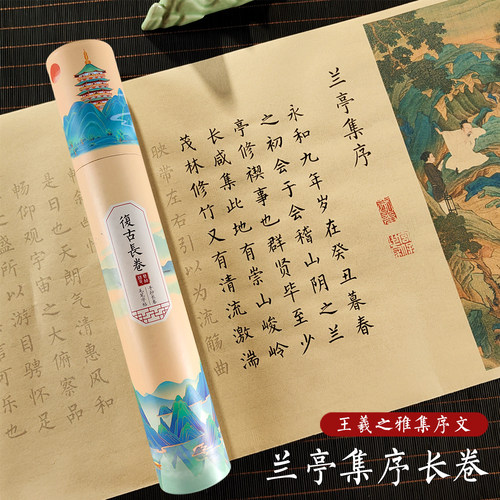 兰亭集序
永和九年岁在癸丑暮春
之初会于会稽山阴之兰
亭修禊事也群贤毕至少
长咸集此地有崇山峻岭
茂林修竹又有清流激湍
映带左右引以为流觞曲
是日也天朗气清惠风和
畅仰观宇宙之大俯察品
盛所以游目骋怀足
可乐也
復古長卷
王羲之雅集序文
兰亭集序长卷